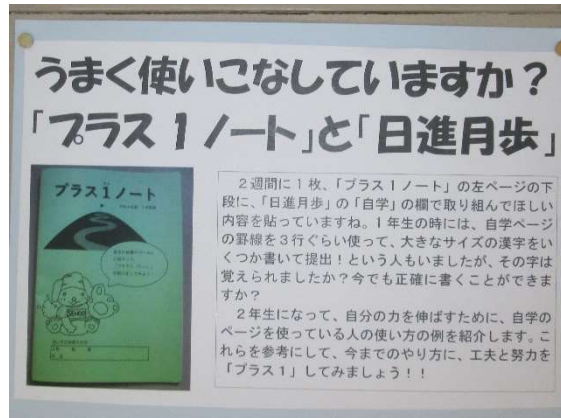 うまく使いこなしていますか?
「プラス1ノート」と「日進月歩」
プラス1ノート
2週間に1枚、「プラス1ノート」の左ページの下
段に、「日進月歩」の「自学」の欄で取り組んでほしい
内容を貼っていますね。1年生の時には、自学ページ
の罫線を3行ぐらい使って、大きなサイズの漢字をい
くつか書いて提出!という人もいましたが、その字は
覚えられましたか?今でも正確に書くことができま
すか?
2年生になって、自分の力を伸ばすために、自学の
ページを使っている人の使い方の例を紹介します。こ
れらを参考にして、今までのやり方に、工夫と努力を
「プラス1」してみましょう!!